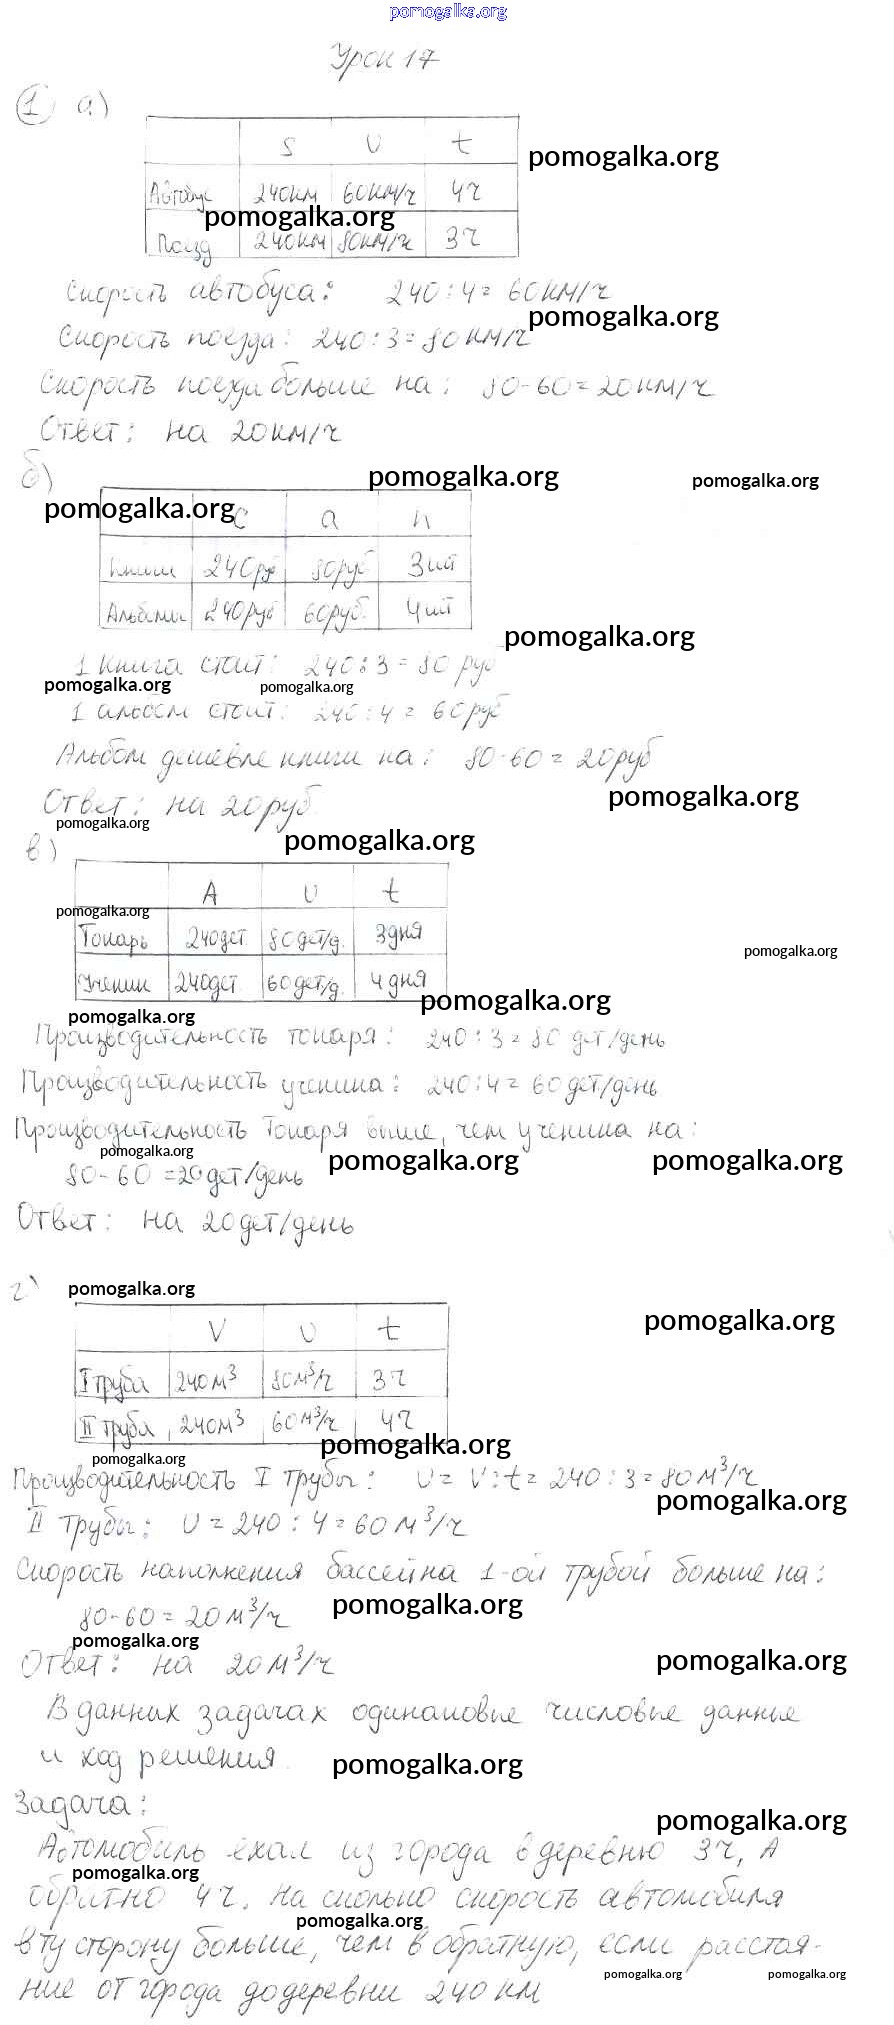 pomogalka.org
Урок 17
1 а)
S υ t
pomogalka.org
Автобус 240км 60км/ч 4ч
pomogalka.org
Поезд 240км 80км/ч 3ч
Скорость автобуса: 240:4= 60км/ч
pomogalka.org
Скорость поезда: 240:3=80км/ч
Скорость поезда больше на: 80-60=20км/ч
Ответ: на 20км/ч
б)
pomogalka.org
pomogalka.org
pomogalka.org
C a n
Книги 240руб 80руб 3шт
Альбомы 240руб 60руб. 4шт
pomogalka.org
1 книга стоит: 240:3=80 руб
pomogalka.org
pomogalka.org
1 альбом стоит: 240:4= 60руб
Альбом дешевле книги на: 80-60= 20руб
Ответ: на 20руб.
pomogalka.org
pomogalka.org
pomogalka.org
в)
A υ t
pomogalka.org
Токарь 240дет 80дет/д. 3дня
pomogalka.org
Ученик 240дет. 60дет/д. 4дня
pomogalka.org
pomogalka.org
Производительность токаря: 240:3=80 дет/день
Производительность ученика: 240:4= 60дет/день
Производительность токаря выше, чем ученика на:
pomogalka.org
pomogalka.org
pomogalka.org
80-60=20дет/день
Ответ: на 20дет/день
г)
pomogalka.org
pomogalka.org
V υ t
I труба 240м³ 80м³/ч 3ч
II труба 240м³ 60м³/ч 4ч
pomogalka.org
pomogalka.org
Производительность I трубы: υ= V:t= 240:3=80м³/ч
pomogalka.org
II трубы: υ=240:4=60м³/ч
Скорость наполнения бассейна 1-ой трубой больше на:
80-60=20м³/ч
pomogalka.org
pomogalka.org
Ответ: на 20м³/ч
pomogalka.org
В данных задачах одинаковые числовые данные
и ход решения.
pomogalka.org
Задача:
pomogalka.org
Автомобиль ехал из города в деревню 3ч, а
pomogalka.org
обратно 4ч. На сколько скорость автомобиля
pomogalka.org
в ту сторону больше, чем в обратную, если расстоя-
pomogalka.org
pomogalka.org
ние от города до деревни 240км